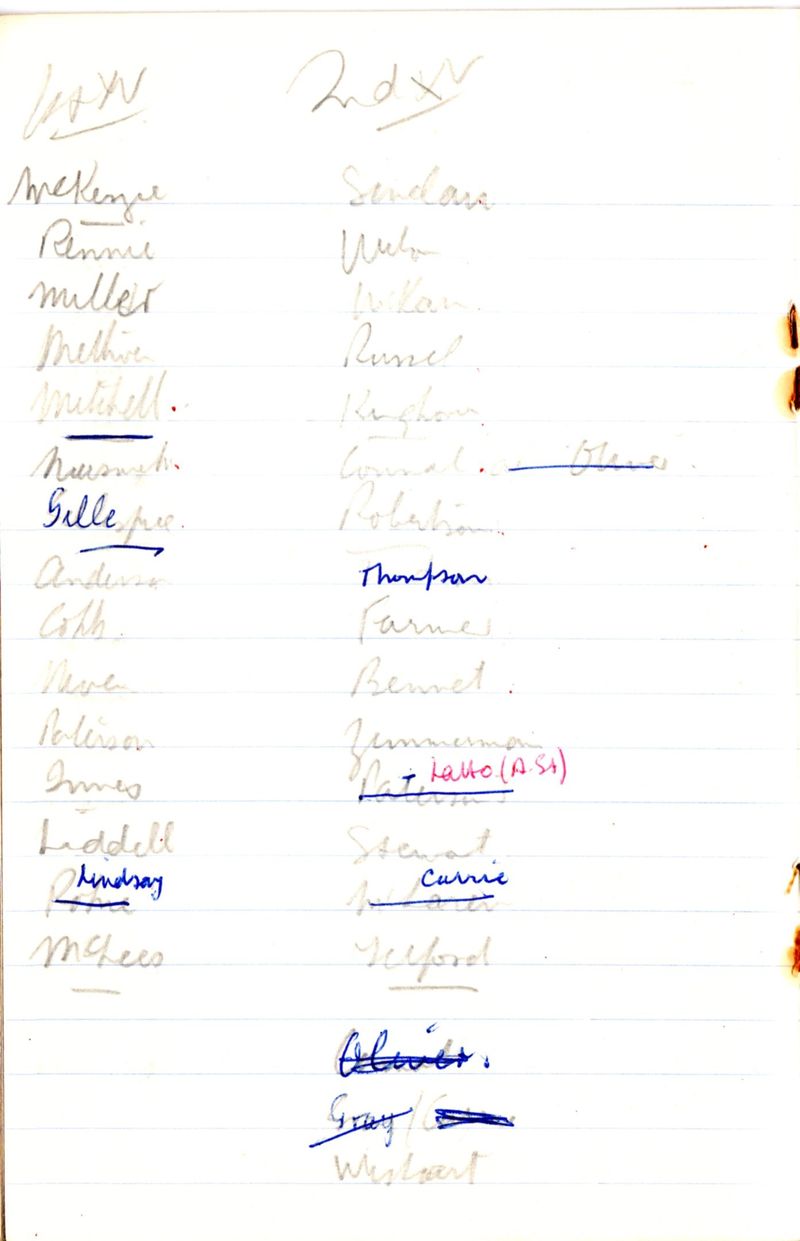 1st XV 2nd XV
McKenzie Sinclair
Rennie
Miller
Methven Russel
Mitchell. Kinghorn
Naismith. Connal. or Oliver
Gillespie. Robertson
Anderson Thompson
Cobb. Farmer
Niven Bennet
Paterson Zimmerman
Innes Paterson Latto (A.St)
Liddell Stewart
Lindsay Currie
McLaren
McLees Telford
Oliver.
Gray /
Wishart